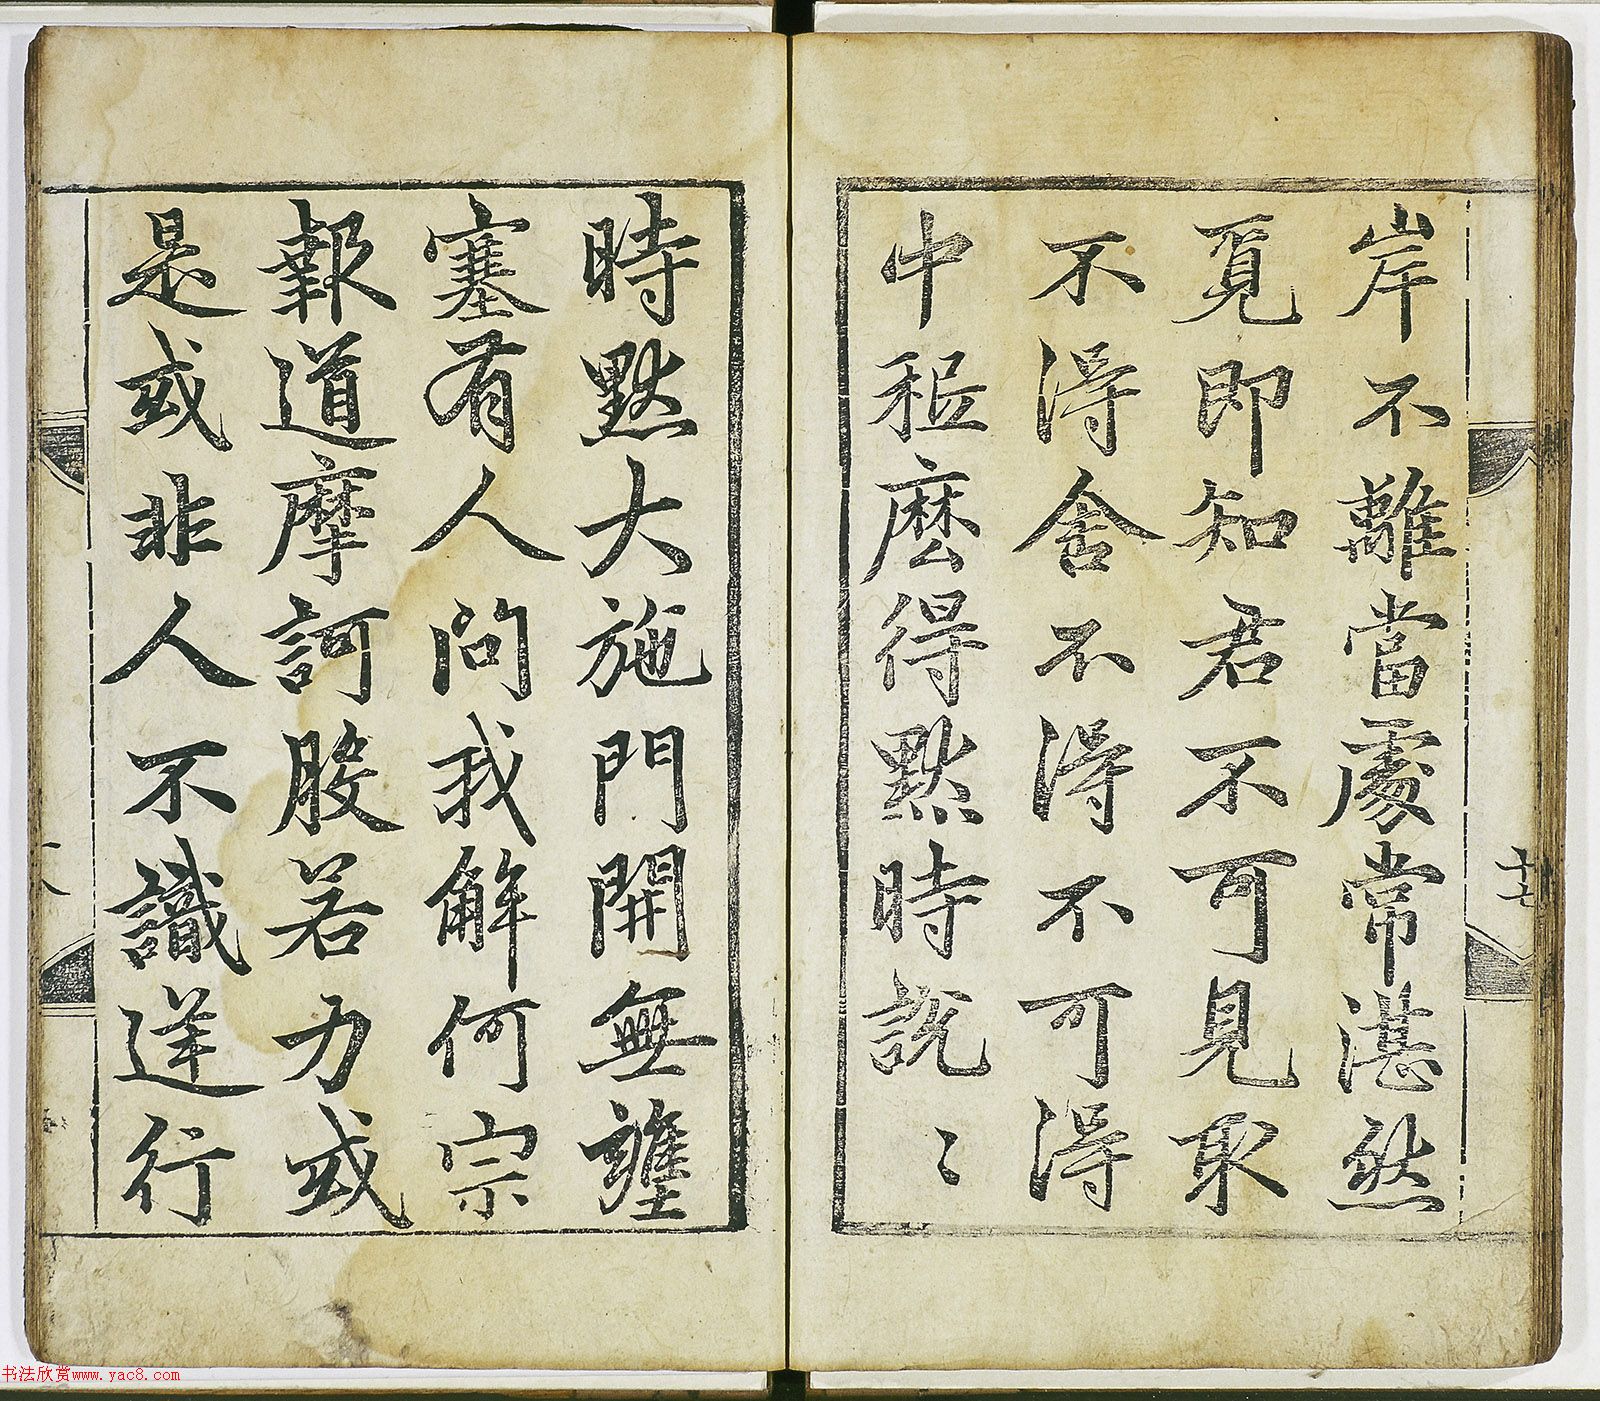 岸不離當處常湛然
覓即知君不可見取
不得舍不得不可得
中秖麼得默時説〻
十七
時默大施門開無壅
塞有人問我解何宗
報道摩訶般若力或
是或非人不識逆行
书法欣赏www.yac8.com